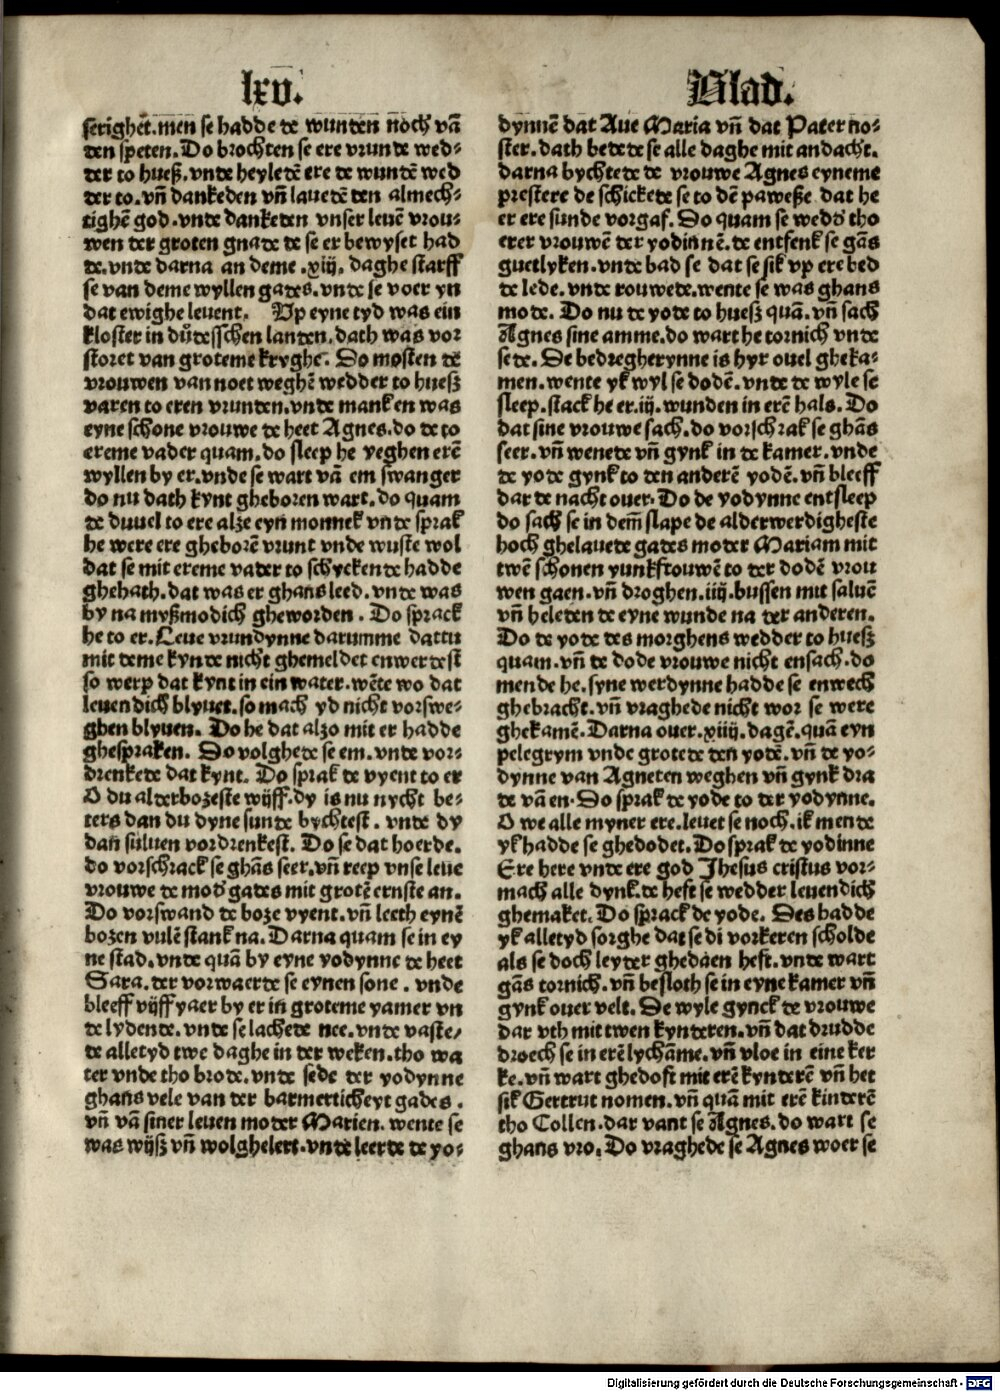 lxv.
Blad.
serighēt.men se hadde de wunden noch vā
den speten. Do brochten se ere vrunde wed-
der to hueß. vnde heyledē ere de wundē wed
der to. vn̄ dankeden vn̄ lauedē den almech-
tighē god. vnde danketen vnser leuē vrou-
wen der groten gnade de se er bewyset had
de. vnde darna an deme .xiij. daghe starff
se van deme wyllen gades. vnde se voer yn
dat ewighe leuent. Up eyne tyd was ein
kloster in dūdesschen landen. dath was vor
storet van groteme kryghe. Do mosten dē
vrouwen van noet weghē wedder to huesz
varen to eren vrunden. vnde mank en was
eyne schone vrouwe de heet Agnes. do de to
ereme vader quam. do sleep he yeghen erē
wyllen by er. vnde se wart vā em swanger
do nu dath kynt gheboren wart. do quam
de duuel to ere alze eyn monnek vnde sprak
he were ere gheborē vrunt vnde wuste wol
dat se mit ereme vader to schyckende hadde
ghehath. dat was er ghans leed. vnde was
by na myßmodich gheworden. Do sprack
he to er. Leue vrundynne darumme dattu
mit deme kynde nicht ghemeldet enwerdest
so werp dat kynt in ein water. wēte wo dat
leuendich blyuet. so mach yd nicht vorswe-
ghen blyuen. Do he dat alzo mit er hadde
ghespraken. Do volghede se em. vnde vor-
drenkede dat kynt. Do sprak de vyent to er
O du alderbozeste wijff. dy is nu nycht be-
ters dan du dyne sunde bychtest. vnde dy
dan̄ sūluen vordrenkest. Do se dat hoerde.
do vorschrack se ghās seer. vn̄ reep vnse leue
vrouwe de mod' gades mit grotē ernste an.
Do vorswand de boze vyent. vn̄ leeth eynē
bozen vulē stank na. Darna quam se in ey
ne stad. vnde quā by eyne yodynne de heet
Sara. der vorwaerde se eynen sone. vnde
bleeff vijff yaer by er in groteme yamer vn
de lydende. vnde se lachede nee. vnde vaste/
de alletyd twe daghe in der weken. tho wa
ter vnde tho brode. vnde sede der yodynne
ghans vele van der barmerticheyt gades.
vn̄ vā siner leuen moder Marien. wente se
was wijß vn̄ wolghelert. vnde leerde de yo-
dynnē dat Aue Maria vn̄ dat Pater no-
ster. dath bedede se alle daghe mit andacht.
darna bychtede de vrouwe Agnes eyneme
prestere de schickede se to dē paweße dat he
er ere sunde vorgaf. Do quam se wedd' tho
erer vrouwē der yodinnē. de entfenk se gās
guetlyken. vnde bad se dat se sik vp ere bed
de lede. vnde rouwede. wente se was ghans
mode. Do nu de yode to huesz quā. vn̄ sach
Agnes sine amme. do wart he tornich vnde
sede. De bedregherynne is hyr ouel gheka-
men. wente yk wyl se dodē. vnde de wyle se
sleep. stack he er .iij. wunden in erē hals. Do
dat sine vrouwe sach. do vorschrak se ghās
seer. vn̄ wenede vn̄ gynk in de kamer. vnde
de yode gynk to den anderē yodē. vn̄ bleeff
dar de nacht ouer. Do de yodynne entsleep
do sach se in dem̄ slape de alderwerdigheste
hoch ghelauede gades moder Mariam mit
twē schonen yunkfrouwē to der dodē vrou
wen gaen. vn̄ droghen .iiij. bussen mit saluē
vn̄ heleden de eyne wunde na der anderen.
Do de yode des morghens wedder to huesz
quam. vn̄ de dode vrouwe nicht ensach. do
mende he. syne werdynne hadde se enwech
ghebracht. vn̄ vraghede nicht wor se were
ghekamē. Darna ouer .xiiij. dagē. quā eyn
pelegrym vnde grotede den yodē. vn̄ de yo-
dynne van Agneten weghen vn̄ gynk dra
de vā en. Do sprak de yode to der yodynne.
O we alle myner ere. leuet se noch. ik mende
yk hadde se ghedodet. Do sprak de yodinne
Ere here vnde ere god Jhesus cristus vor-
mach alle dynk. de heft se wedder leuendich
ghemaket. Do sprack de yode. Des hadde
yk alletyd sorghe dat se di vorkeren scholde
als se doch leyder ghedaen heft. vnde wart
gās tornich. vn̄ besloth se in eyne kamer vn̄
gynk ouer velt. De wyle gynck de vrouwe
dar vth mit twen kynderen. vn̄ dat drudde
droech se in erē lychāme. vn̄ vloe in eine ker
ke. vn̄ wart ghedoft mit erē kynderē vn̄ het
sik Gertrut nomen. vn̄ quā mit erē kinderē
tho Collen. dar vant se Agnes. do wart se
ghans vro. Do vraghede se Agnes woer se
Digitalisierung gefördert durch die Deutsche Forschungsgemeinschaft - DFG